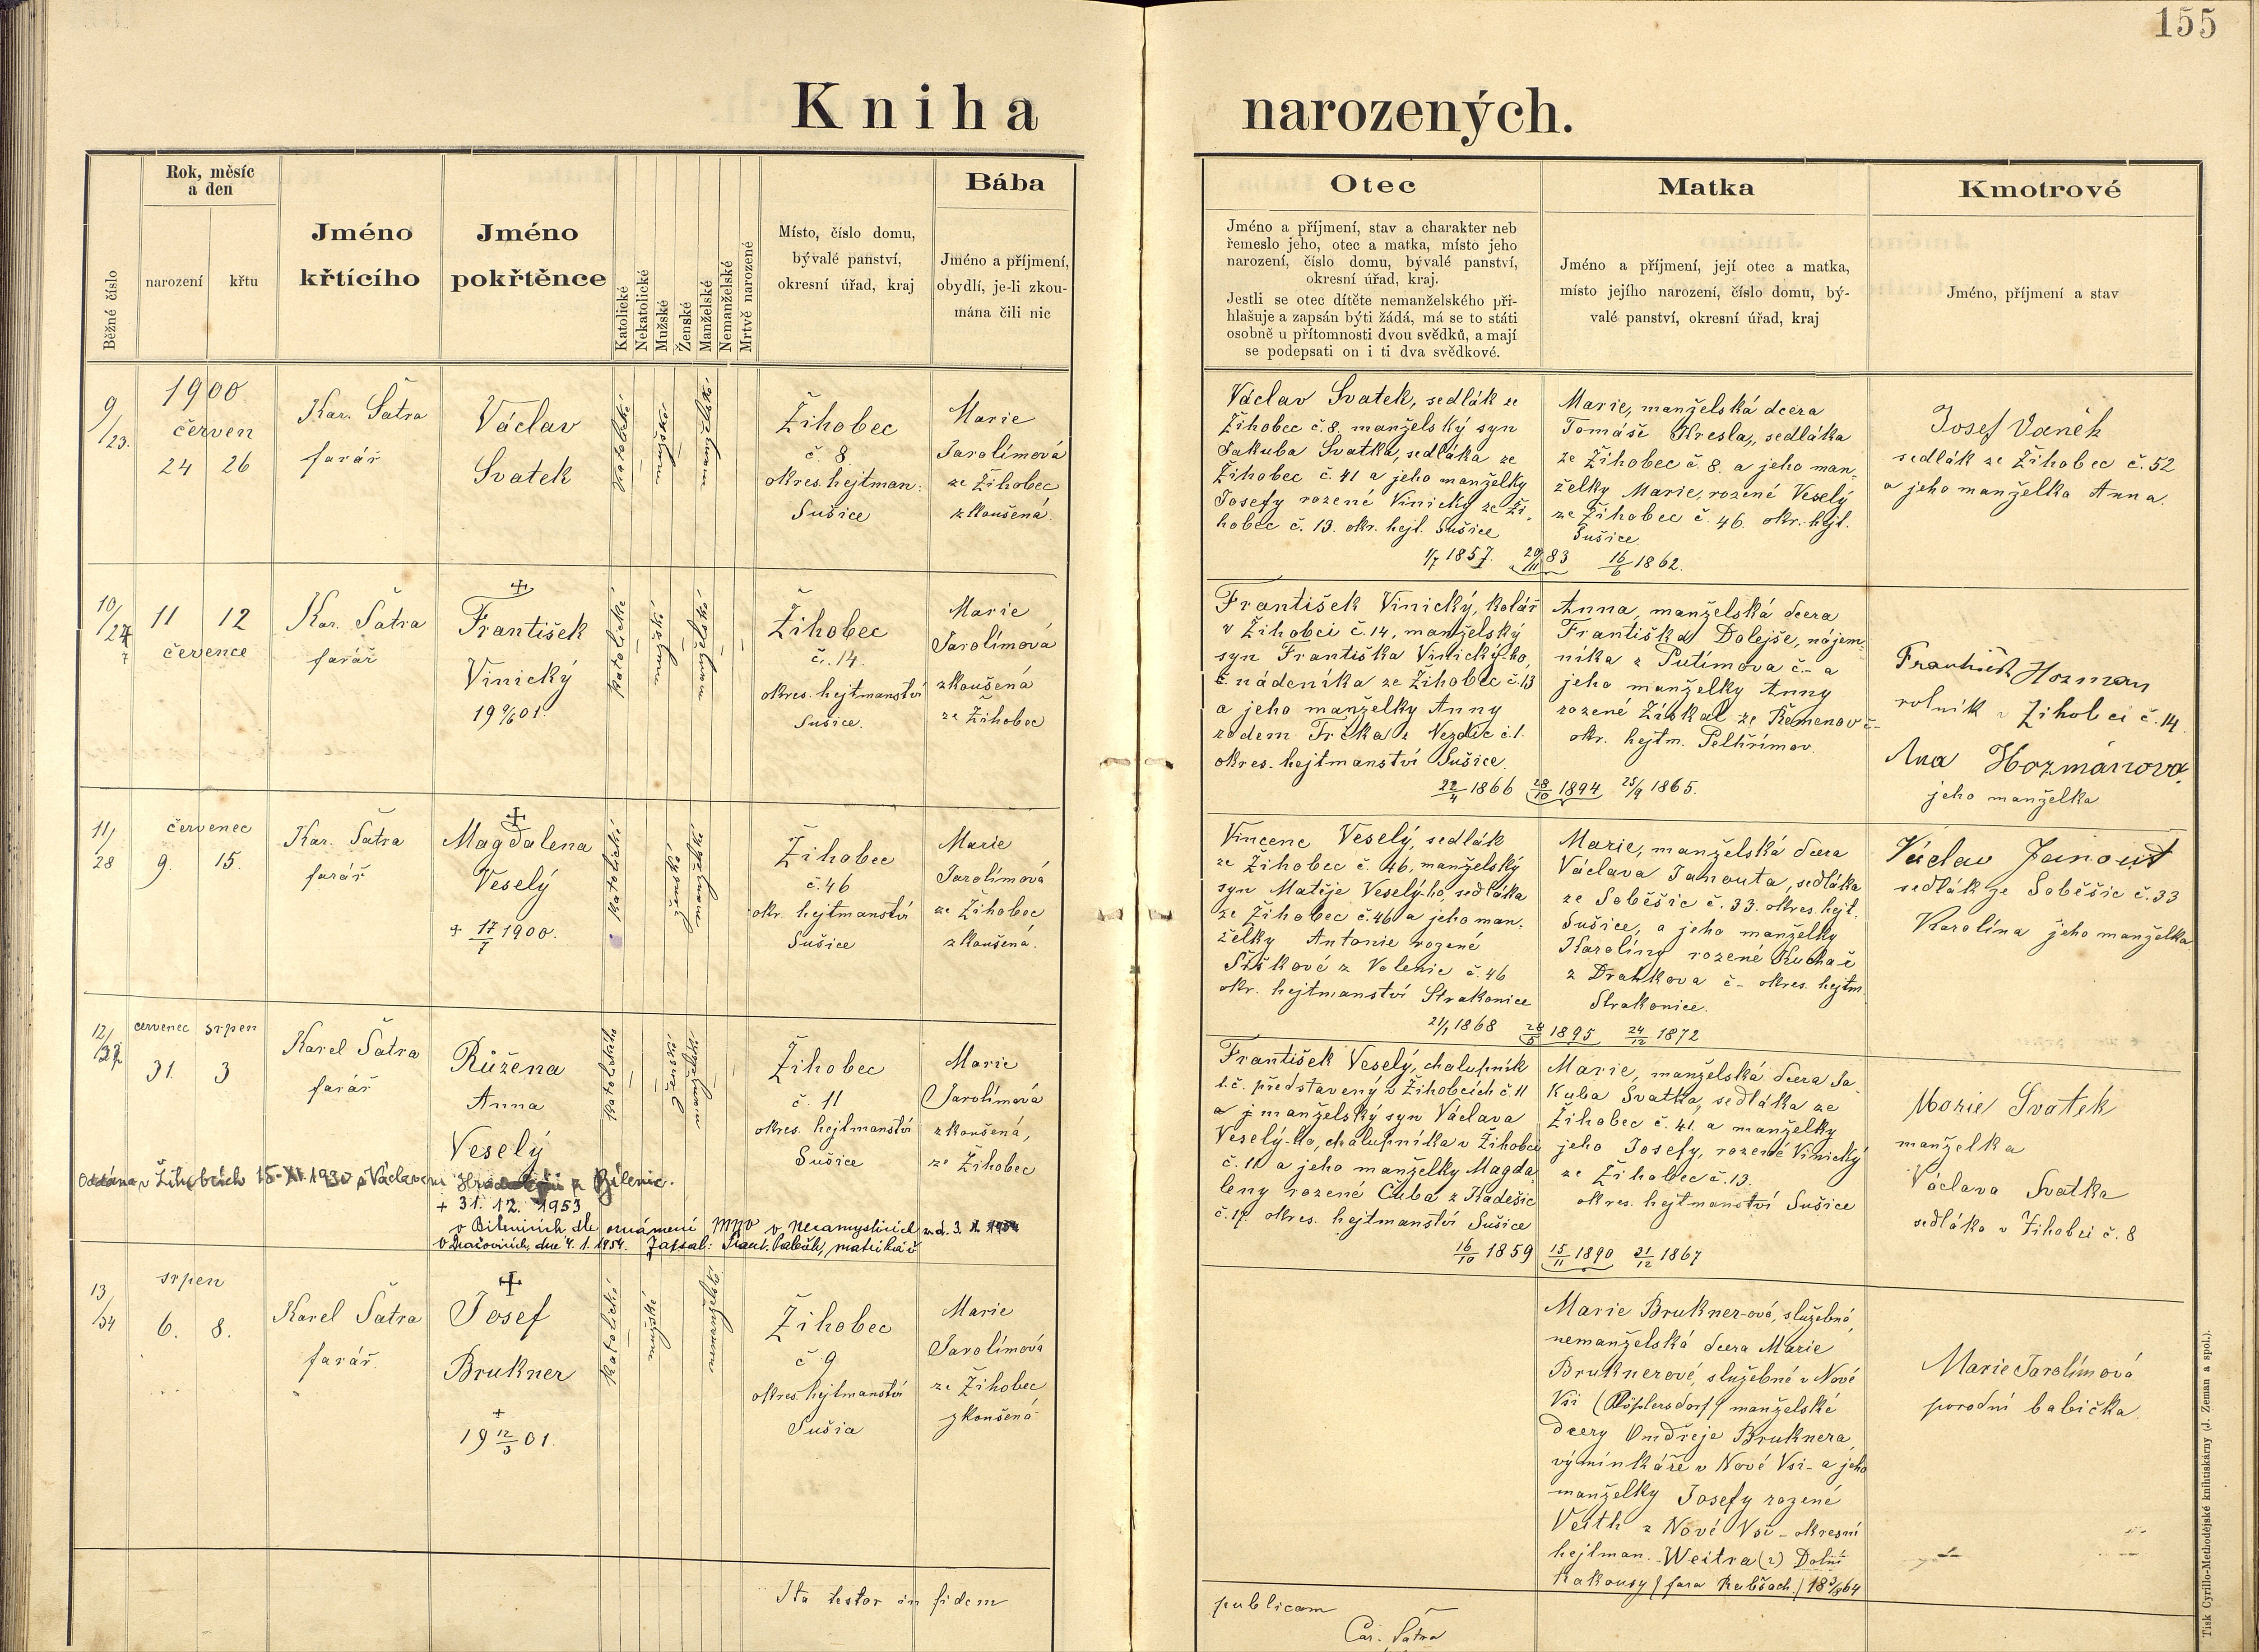 155
Kniha narozených.
Běžné číslo
Rok, měsíc
a den
narození
křtu
Jméno
křtícího
Jméno
pokřtěnce
Katolické
Nekatolické
Mužské
Ženské
Manželské
Nemanželské
Mrtvě narozené
Místo, číslo domu,
bývalé panství,
okresní úřad, kraj
Bába
Jméno a příjmení,
obydlí, je-li zkou-
mána čili nic
Otec
Jméno a příjmení, stav a charakter neb
řemeslo jeho, otec a matka, místo jeho
narození, číslo domu, bývalé panství,
okresní úřad, kraj.
Jestli se otec dítěte nemanželského při-
hlašuje a zapsán býti žádá, má se to státi
osobně u přítomnosti dvou svědků, a mají
se podepsati on i ti dva svědkové.
Matka
Jméno a příjmení, její otec a matka,
místo jejího narození, číslo domu, bý-
valé panství, okresní úřad, kraj
Kmotrové
Jméno, příjmení a stav
9/23.
1900
červen
24 26
Kar. Šatra
farář
Václav
Svatek
katolické
mužské
manželské
Žihobec
č. 8
okres. hejtman:
Sušice
Marie
Jarolímová
ze Žihobec
zkoušená.
Václav Svatek, sedlák ze
Žihobec č. 8, manželský syn
Jakuba Svatka, sedláka ze
Žihobec č. 41 a jeho manželky
Josefy rozené Vinický ze Ži-
hobec č. 13. okr. hejt. Sušice
1/7 1857. 20/11 83
Marie, manželská dcera
Tomáše Kresla, sedláka
ze Žihobec č. 8. a jeho man-
želky Marie, rozené Veselý
ze Žihobec č. 46. okr. hejt.
Sušice
16/6 1862.
Josef Vaněk
sedlák ze Žihobec č. 52
a jeho manželka Anna.
10/27
11 12
července
Kar. Šatra
farář
+
František
Vinický
katolické
mužské
manželské
Žihobec
č. 14.
okres. hejtmanství
Sušice.
Marie
Jarolímová
zkoušená
ze Žihobec
František Vinický, kolář
v Žihobci č. 14, manželský
syn Františka Vinický-ho,
nádeníka ze Žihobec č. 13
a jeho manželky Anny
rodem Trčka z Nezdic č. 1.
okres. hejtmanství Sušice.
22/4 1866 28/10 1894
Anna, manželská dcera
Františka Dolejše, nájem-
níka z Putimova č - a
jeho manželky Anny
rozené Získal ze Řemenov č -
okr. hejtm. Pelhřimov.
25/9 1865.
František Hozman
rolník v Žihobci č. 14
Ana Hozmánová,
jeho manželka
11/28
červenec
9. 15.
Kar. Šatra
farář
+
Magdalena
Veselý
+ 17/7 1900.
katolické
ženský
manželské
Žihobec
č. 46
okr. hejtmanství
Sušice
Marie
Jarolímová
ze Žihobec
zkoušená.
Vincenc Veselý, sedlák
ze Žihobec č. 46, manželský
syn Matěje Veselý-ho, sedláka
ze Žihobec č. 46 a jeho man-
želky Antonie rozené
Šiškové z Volenic č. 46
okr. hejtmanství Strakonice
21/1 1868 28/5 1895
Marie, manželská dcera
Václava Janouta, sedláka
ze Soběšic č. 33. okres. hejt.
Sušice, a jeho manželky
Karolíny rozené Kuchař
z Drahkova č - okres. hejtm.
Strakonice.
24/12 1872
Václav Janout
sedlák ze Soběšic č. 33
Karolína jeho manželka
12/32
červenec srpen
31. 3
Karel Šatra
farář
Růžena
Anna
Veselý
katolické
ženské
manželské
Žihobec
č. 11
okres. hejtmanství
Sušice
Marie
Jarolímová
zkoušená,
ze Žihobec
Oddána v Žihobcích 15. XI. 1930 s Václavem z Bílenic.
+ 31. 12. 1953
v Bílenicích dle oznámení MNV v Nezamyslicích
V Dračovicích, dne 4. 1. 1954. Zapsal: matrikář
František Veselý, chalupník
t. č. představený v Žihobcích č 11
a j manželský syn Václava
Veselý-ho, chalupníka v Žihobci
č. 11 a jeho manželky Magda-
leny rozené Čuba z Kadešic
č. 17. okres. hejtmanství Sušice
16/10 1859
Marie, manželská dcera Ja-
kuba Svatka, sedláka ze
Žihobec č. 41. a manželky
jeho Josefy, rozené Vinický
ze Žihobec č. 13.
okres. hejtmanství Sušice
15/11 1890 21/12 1867
Marie Svatek
manželka
Václava Svatka
sedláka v Žihobci č. 8
13/34
srpen
6. 8.
Karel Šatra
farář
+
Josef
Brukner
+
19 12/3 01.
katolické
mužské
nemanželské
Žihobec
č 9
okres. hejtmanství
Sušice
Marie
Jarolímová
ze Žihobec
zkoušená
Marie Brukner-ová, služebná,
nemanželská dcera Marie
Bruknerové, služebné v Nové
Vsi manželské
dcery Ondřeje Bruknera,
výminkáře v Nové Vsi - a jeho
manželky Josefy rozené
Veith z Nové Vsi - okresní
hejtman. Weitra (?) Dolní
Rakousy / fara
Marie Jarolímová
porodní babička.
Ita testor in fidem
publicam
Car. Šatra
Tisk Cyrillo-Methodějské knihtiskárny (J. Zeman a spol.).